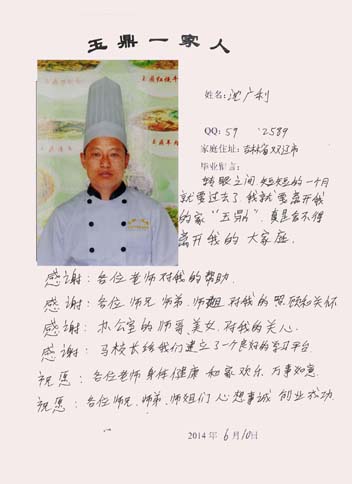 玉鼎一家人
姓名:池广利
QQ: 59 2589
家庭住址:吉林省双辽市
毕业留言:
转眼之间短短的一个月
就要过去了我就要离开我
的家“玉鼎”.真是舍不得
离开我的大家庭.
感谢:各位老师对我的帮助.
感谢:各位师兄师弟.师姐.对我的照顾和关怀
感谢:办公室的师哥、美女.对我的关心.
感谢:马校长给我们建立了一个良好的学习平台.
祝愿:各位老师身体健康和家欢乐.万事如意.
祝愿:各位师兄.师弟.师姐们心想事诚创业成功.
2014年6月10日